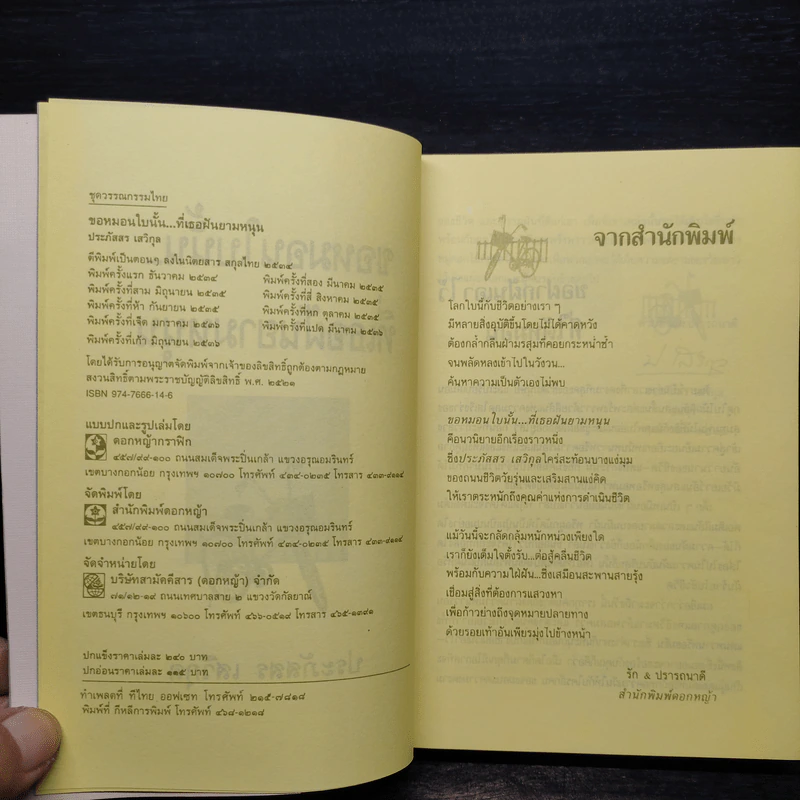 ชุดวรรณกรรมไทย
ขอหมอนใบนั้น...ที่เธอฝันยามหนุน
ประภัสสร เสวิกุล
ตีพิมพ์เป็นตอนๆ ลงในนิตยสาร สกุลไทย ๒๕๓๔
พิมพ์ครั้งแรก ธันวาคม ๒๕๓๔ พิมพ์ครั้งที่สอง มีนาคม ๒๕๓๕
พิมพ์ครั้งที่สาม มิถุนายน ๒๕๓๕ พิมพ์ครั้งที่สี่ สิงหาคม ๒๕๓๕
พิมพ์ครั้งที่ห้า กันยายน ๒๕๓๕ พิมพ์ครั้งที่หก ตุลาคม ๒๕๓๕
พิมพ์ครั้งที่เจ็ด มกราคม ๒๕๓๖ พิมพ์ครั้งที่แปด มีนาคม ๒๕๓๖
พิมพ์ครั้งที่เก้า มิถุนายน ๒๕๓๖
โดยได้รับการอนุญาตจัดพิมพ์จากเจ้าของลิขสิทธิ์ถูกต้องตามกฎหมาย
สงวนสิทธิ์ตามพระราชบัญญัติลิขสิทธิ์ พ.ศ. ๒๕๒๑
ISBN 974-7666-14-6
แบบปกและรูปเล่มโดย
ดอกหญ้ากราฟิก
๔๕๗/๙๙-๑๐๐ ถนนสมเด็จพระปิ่นเกล้า แขวงอรุณอมรินทร์
เขตบางกอกน้อย กรุงเทพฯ ๑๐๗๐๐ โทรศัพท์ ๔๓๔-๐๒๓๕ โทรสาร ๔๓๓-๙๑๑๔
จัดพิมพ์โดย
สำนักพิมพ์ดอกหญ้า
๔๕๗/๙๙-๑๐๐ ถนนสมเด็จพระปิ่นเกล้า แขวงอรุณอมรินทร์
เขตบางกอกน้อย กรุงเทพฯ ๑๐๗๐๐ โทรศัพท์ ๔๓๔-๐๒๓๕ โทรสาร ๔๓๓-๙๑๑๔
จัดจำหน่ายโดย
บริษัทสามัคคีสาร (ดอกหญ้า) จำกัด
๗๑/๑๒-๑๙ ถนนเทศบาลสาย ๒ แขวงวัดกัลยาณ์
เขตธนบุรี กรุงเทพฯ ๑๐๖๐๐ โทรศัพท์ ๔๖๖-๐๕๑๙ โทรสาร ๔๖๕-๑๓๙๑
ปกแข็งราคาเล่มละ ๒๔๐ บาท
ปกอ่อนราคาเล่มละ ๑๑๕ บาท
ทำเพลตที่ ทีไทย ออฟเซท โทรศัพท์ ๒๑๕-๗๘๑๘
พิมพ์ที่ กีหลีการพิมพ์ โทรศัพท์ ๔๖๘-๑๒๑๘
จากสำนักพิมพ์
โลกใบนี้กับชีวิตอย่างเรา ๆ
มีหลายสิ่งอุบัติขึ้นโดยไม่ได้คาดหวัง
ต้องกล้ำกลืนฝ่ามรสุมที่คอยกระหน่ำซ้ำ
จนพลัดหลงเข้าไปในวังวน...
ค้นหาความเป็นตัวเองไม่พบ
ขอหมอนใบนั้น...ที่เธอฝันยามหนุน
คือนวนิยายอีกเรื่องราวหนึ่ง
ซึ่งประภัสสร เสวิกุลใคร่สะท้อนบางแง่มุม
ของถนนชีวิตวัยรุ่นและเสริมสานแง่คิด
ให้เราตระหนักถึงคุณค่าแห่งการดำเนินชีวิต
แม้วันนี้จะกลัดกลุ้มหนักหน่วงเพียงใด
เราก็ยังเต็มใจตั้งรับ...ต่อสู้คลื่นชีวิต
พร้อมกับความใฝ่ฝัน...ซึ่งเสมือนสะพานสายรุ้ง
เชื่อมสู่สิ่งที่ต้องการแสวงหา
เพื่อก้าวย่างถึงจุดหมายปลายทาง
ด้วยรอยเท้าอันเพียรมุ่งไปข้างหน้า
รัก & ปรารถนาดี
สำนักพิมพ์ดอกหญ้า